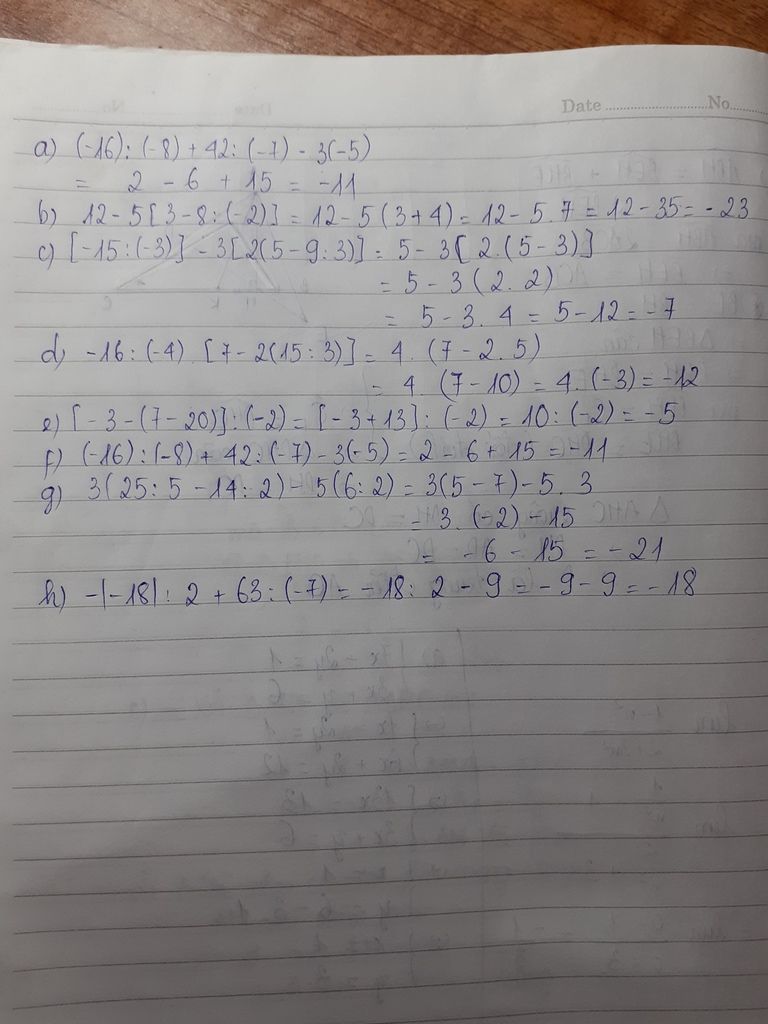 Date ........................ No.......
a) (-16) : (-8) + 42 : (-7) - 3(-5)
= 2 - 6 + 15 = -11
b) 12 - 5 [ 3 - 8 : (-2) ] = 12 - 5 (3 + 4) = 12 - 5 . 7 = 12 - 35 = - 23
c) [ -15 : (-3) ] - 3 [ 2(5 - 9 : 3) ] = 5 - 3 [ 2 . (5 - 3) ]
= 5 - 3 ( 2 . 2 )
= 5 - 3 . 4 = 5 - 12 = -7
d) -16 : (-4) . [ 7 - 2(15 : 3) ] = 4 . (7 - 2 . 5)
= 4 . (7 - 10) = 4 . (-3) = -12
e) [ - 3 - (7 - 20) ] : (-2) = [ - 3 + 13 ] : (-2) = 10 : (-2) = -5
f) (-16) : (-8) + 42 : (-7) - 3(-5) = 2 - 6 + 15 = -11
g) 3( 25 : 5 - 14 : 2) - 5(6 : 2) = 3(5 - 7) - 5 . 3
= 3 . (-2) - 15
= -6 - 15 = -21
h) -|-18| : 2 + 63 : (-7) = -18 : 2 - 9 = -9 - 9 = -18